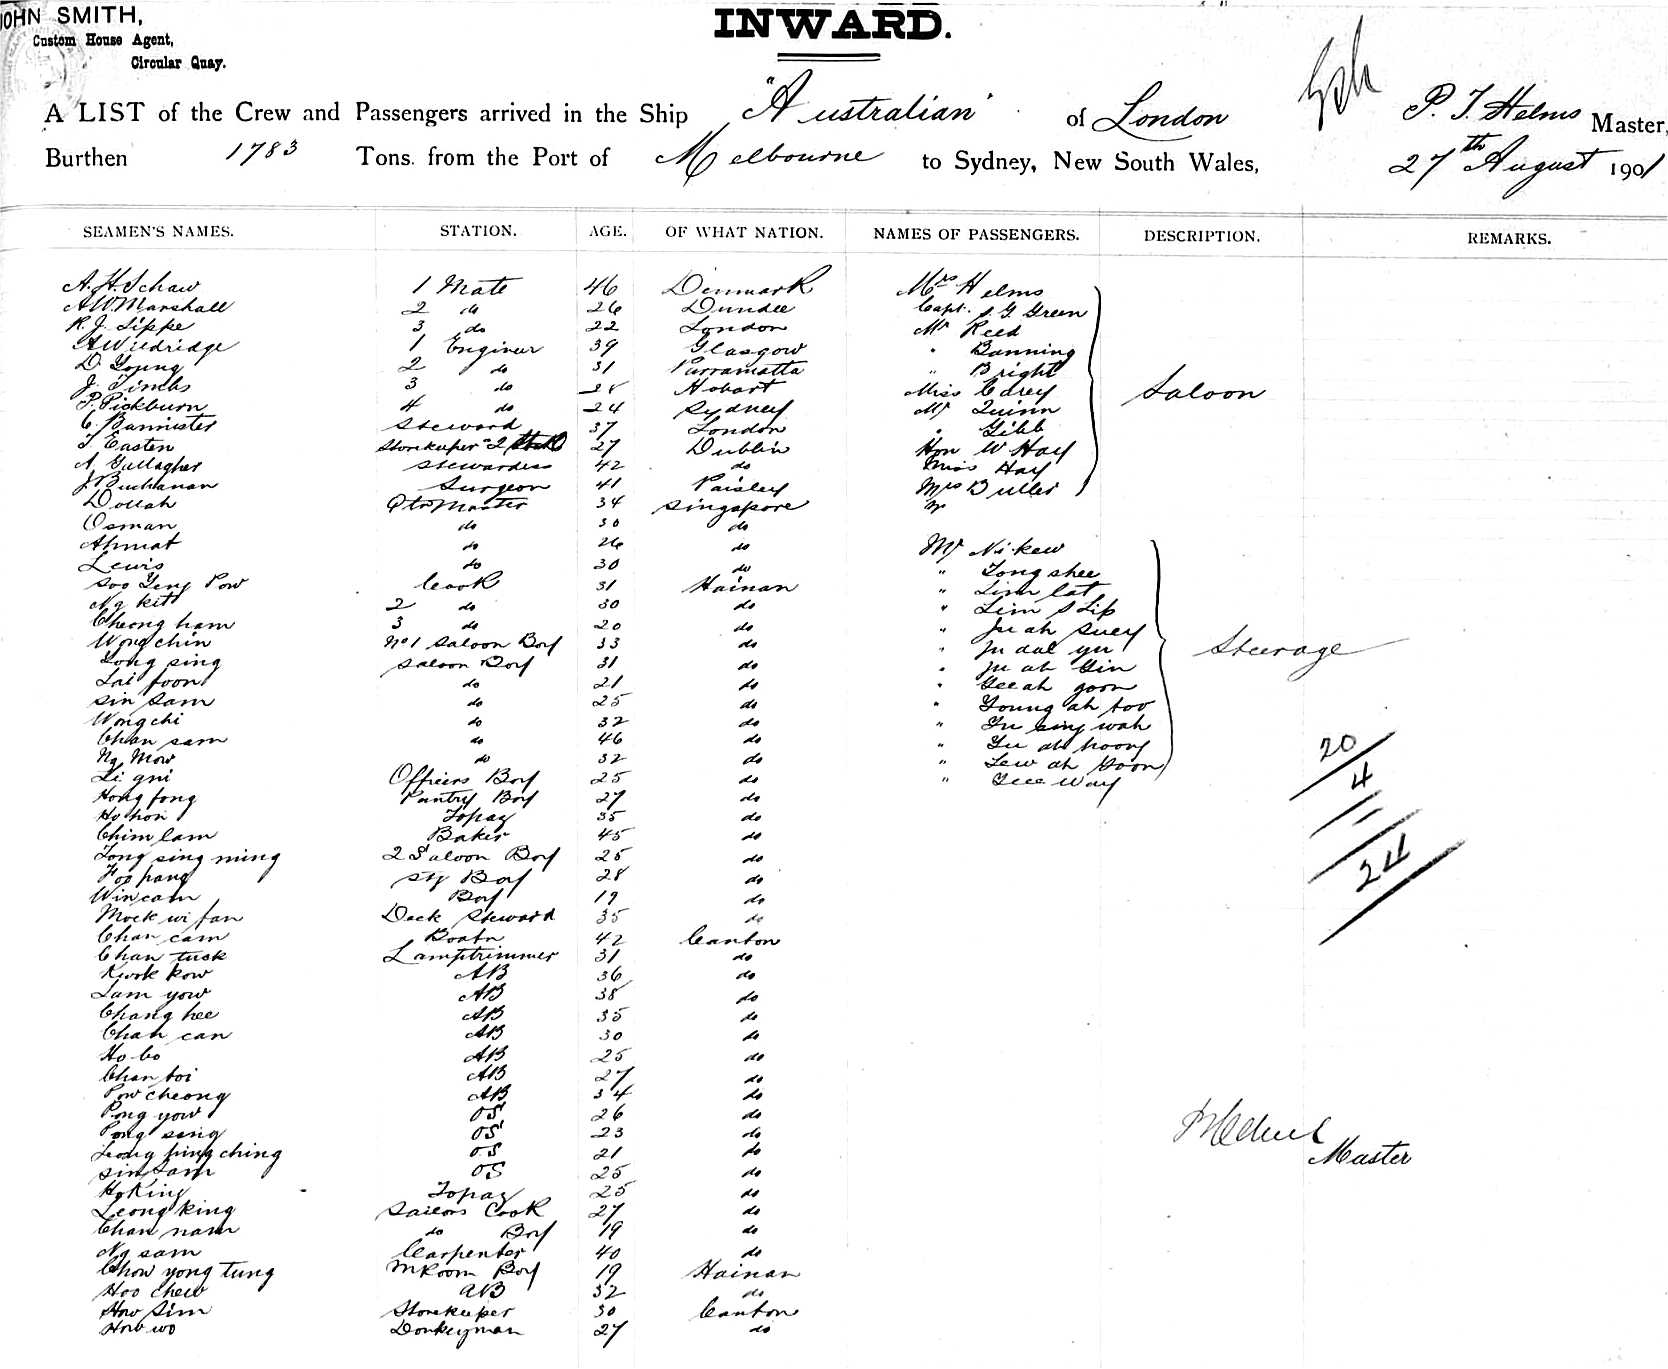 JOHN SMITH,
Custom House Agent,
Circular Quay.
INWARD.
A LIST of the Crew and Passengers arrived in the Ship "Australian" of London P. T. Helms Master,
Burthen 1783 Tons. from the Port of Melbourne to Sydney, New South Wales, 27th August 1901
SEAMEN'S NAMES. STATION. AGE. OF WHAT NATION. NAMES OF PASSENGERS. DESCRIPTION. REMARKS.
A. H. Schaw 1 Mate 46 Denmark Mrs Helms
A W Marshall 2 do 26 Dundee Capt. J G Green
R. J. Lippe 3 do 22 London Mr Reed
A Wildridge 1 Engineer 39 Glasgow " Banning
D Young 2 do 31 Parramatta " Bright
J. Timbs 3 do 28 Hobart Miss Carey Saloon
P. Pickburn 4 do 24 Sydney Mr Quinn
C. Bannister Steward 37 London " Gibb
T Easten Storekeeper 2 27 Dublin Hon W Hay
A Gallagher Stewardess 42 do Miss Hay
J. Buchanan Surgeon 41 Paisley Mrs Buller
Dollah Qtr Master 34 Singapore
Osman do 30 do
Ahmat do 26 do Mr Ni kew
Lewis do 30 do " Tong shee
Soo Yeng Pow Cook 31 Hainan " Lim lat
Ng kitt 2 do 30 do " Lim S Lip
Cheong ham 3 do 20 do " Ju ah Suey
Wong chin No 1 Saloon Boy 33 do " Ju dal yu Steerage
Tong sing Saloon Boy 31 do " Ju ah Gin
Lai foon do 21 do " Gee ah goon
Sin Sam do 25 do " Young ah too
Wong chi do 32 do " Yu sing wah
Chan sam do 46 do " Yu ah hoong
Ng Mow do 32 do " Lew ah Goon
Li gni Officers Boy 25 do " Gee Way
Hong fong Pantry Boy 27 do
Ho hon Topaz 35 do
Chim lam Baker 45 do
Tong sing ming 2 Saloon Boy 25 do
Foo pang Stg Boy 28 do
Win cam Boy 19 do
Mock wi fan Deck Steward 35 do
Chan cam Boatn 42 Canton
Chan tuck Lamptrimmer 31 do
Kwok kow AB 36 do
Lam yow AB 38 do
Chang hee AB 35 do
Chan can AB 30 do
Ho bo AB 25 do
Chan toi AB 27 do
Pow cheong AB 34 do
Pong yow OS 26 do
Pong sang OS 23 do
Leong ping ching OS 21 do
Sin Sam OS 25 do
Ho King Topaz 25 do
Leong king Sailors Cook 27 do
Chan nam do Boy 19 do
Ng sam Carpenter 40 do
Chow yong tung M Room Boy 19 Hainan
Hoo chew AB 32 do
How Sim Storekeeper 30 Canton
How wo Donkeyman 27 do
20
4
24
Master